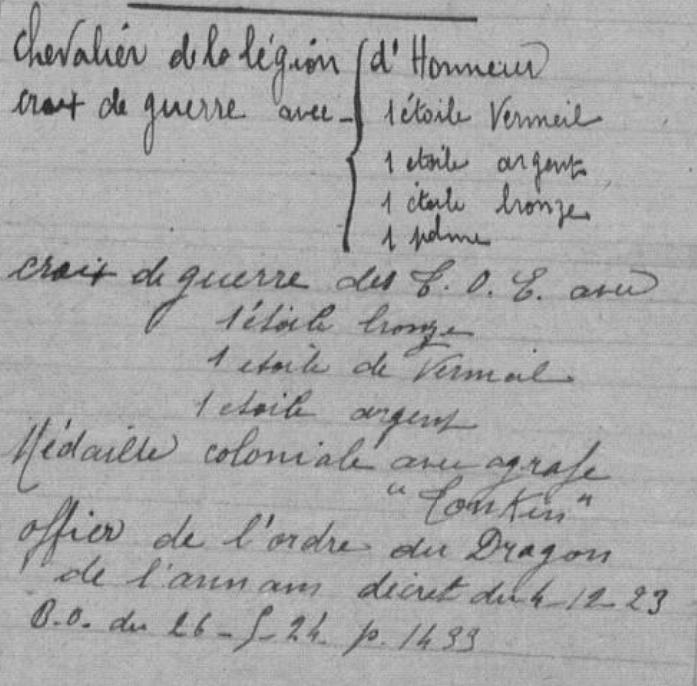 Chevalier de la légion d'Honneur
croix de guerre avec - 1 étoile Vermeil
1 etoile argent
1 étoile bronze
1 palme
croix de guerre des T. O. E. avec
1 étoile bronze
1 etoile de Vermeil
1 etoile argent
Médaille coloniale avec agrafe
"Tonkin"
offier de l'ordre du Dragon
de l'annam décret du 4-12-23
B.O. du 26-5-24 p. 1433